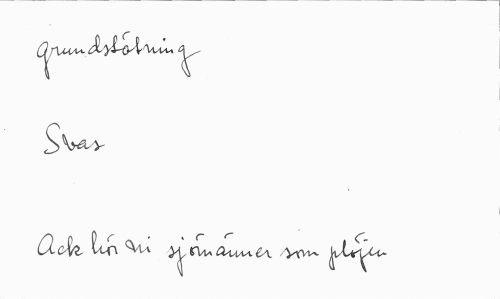 Grundstötning
Svas
Ack hör Ni sjömänner som plöjen